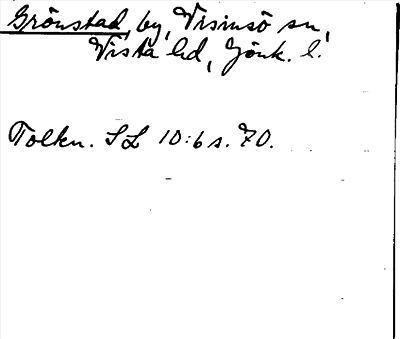 Grönstad, by, Visinsö sn,
Vista hd, Jönk. l.
Tolkn. SL 10:6 s. 70.